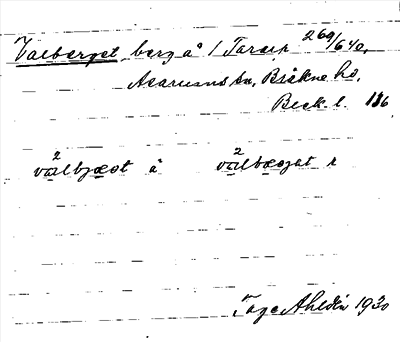 Valberget, berg å 1 Tararp 269/640,
Asarums sn, Bräkne hd,
Blek. l. 186
2 2
valbjæst å valbæsjat r
Tage Ahldén 1930